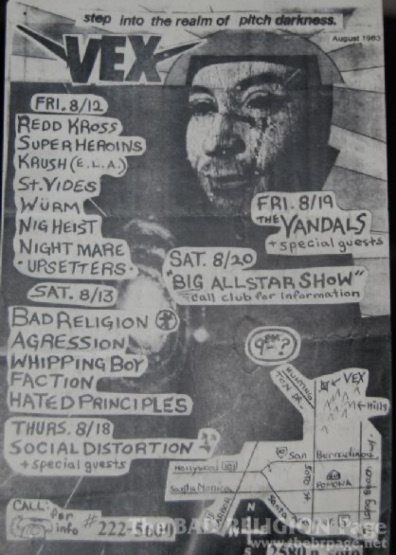 step into the realm of pitch darkness.
VEX
August 1983
FRI. 8/12
REDD KROSS
SUPERHEROINS
KRUSH (E.L.A.)
ST. VIDES
WÜRM
NIG HEIST
NIGHTMARE
·UPSETTERS·
SAT. 8/13
BAD RELIGION
AGRESSION
WHIPPING BOY
FACTION
HATED PRINCIPLES
THURS. 8/18
SOCIAL DISTORTION
+ special guests
FRI. 8/19
THE VANDALS
+ special guests
SAT. 8/20
"BIG ALLSTAR SHOW"
call club for information
9PM-?
VEX
Hills
San Bernardino
Hollywood
Santa Monica
POMONA
Long Beach
Santa
N
W
CALL:
for
info
# 222-5600
The BAD RELIGION Page
www.thebrpage.net